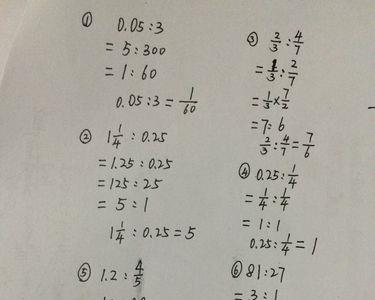 ① 0.05:3
= 5:300
= 1:60
0.05:3 = 1/60
② 1 1/4 : 0.25
= 1.25 : 0.25
= 125 : 25
= 5 : 1
1 1/4 : 0.25 = 5
⑤ 1.2 : 4/5
③ 2/3 : 4/7
= 1/3 : 2/7
= 1/3 × 7/2
= 7:6
2/3 : 4/7 = 7/6
④ 0.25 : 1/4
= 1/4 : 1/4
= 1:1
0.25 : 1/4 = 1
⑥ 81:27
= 3:1